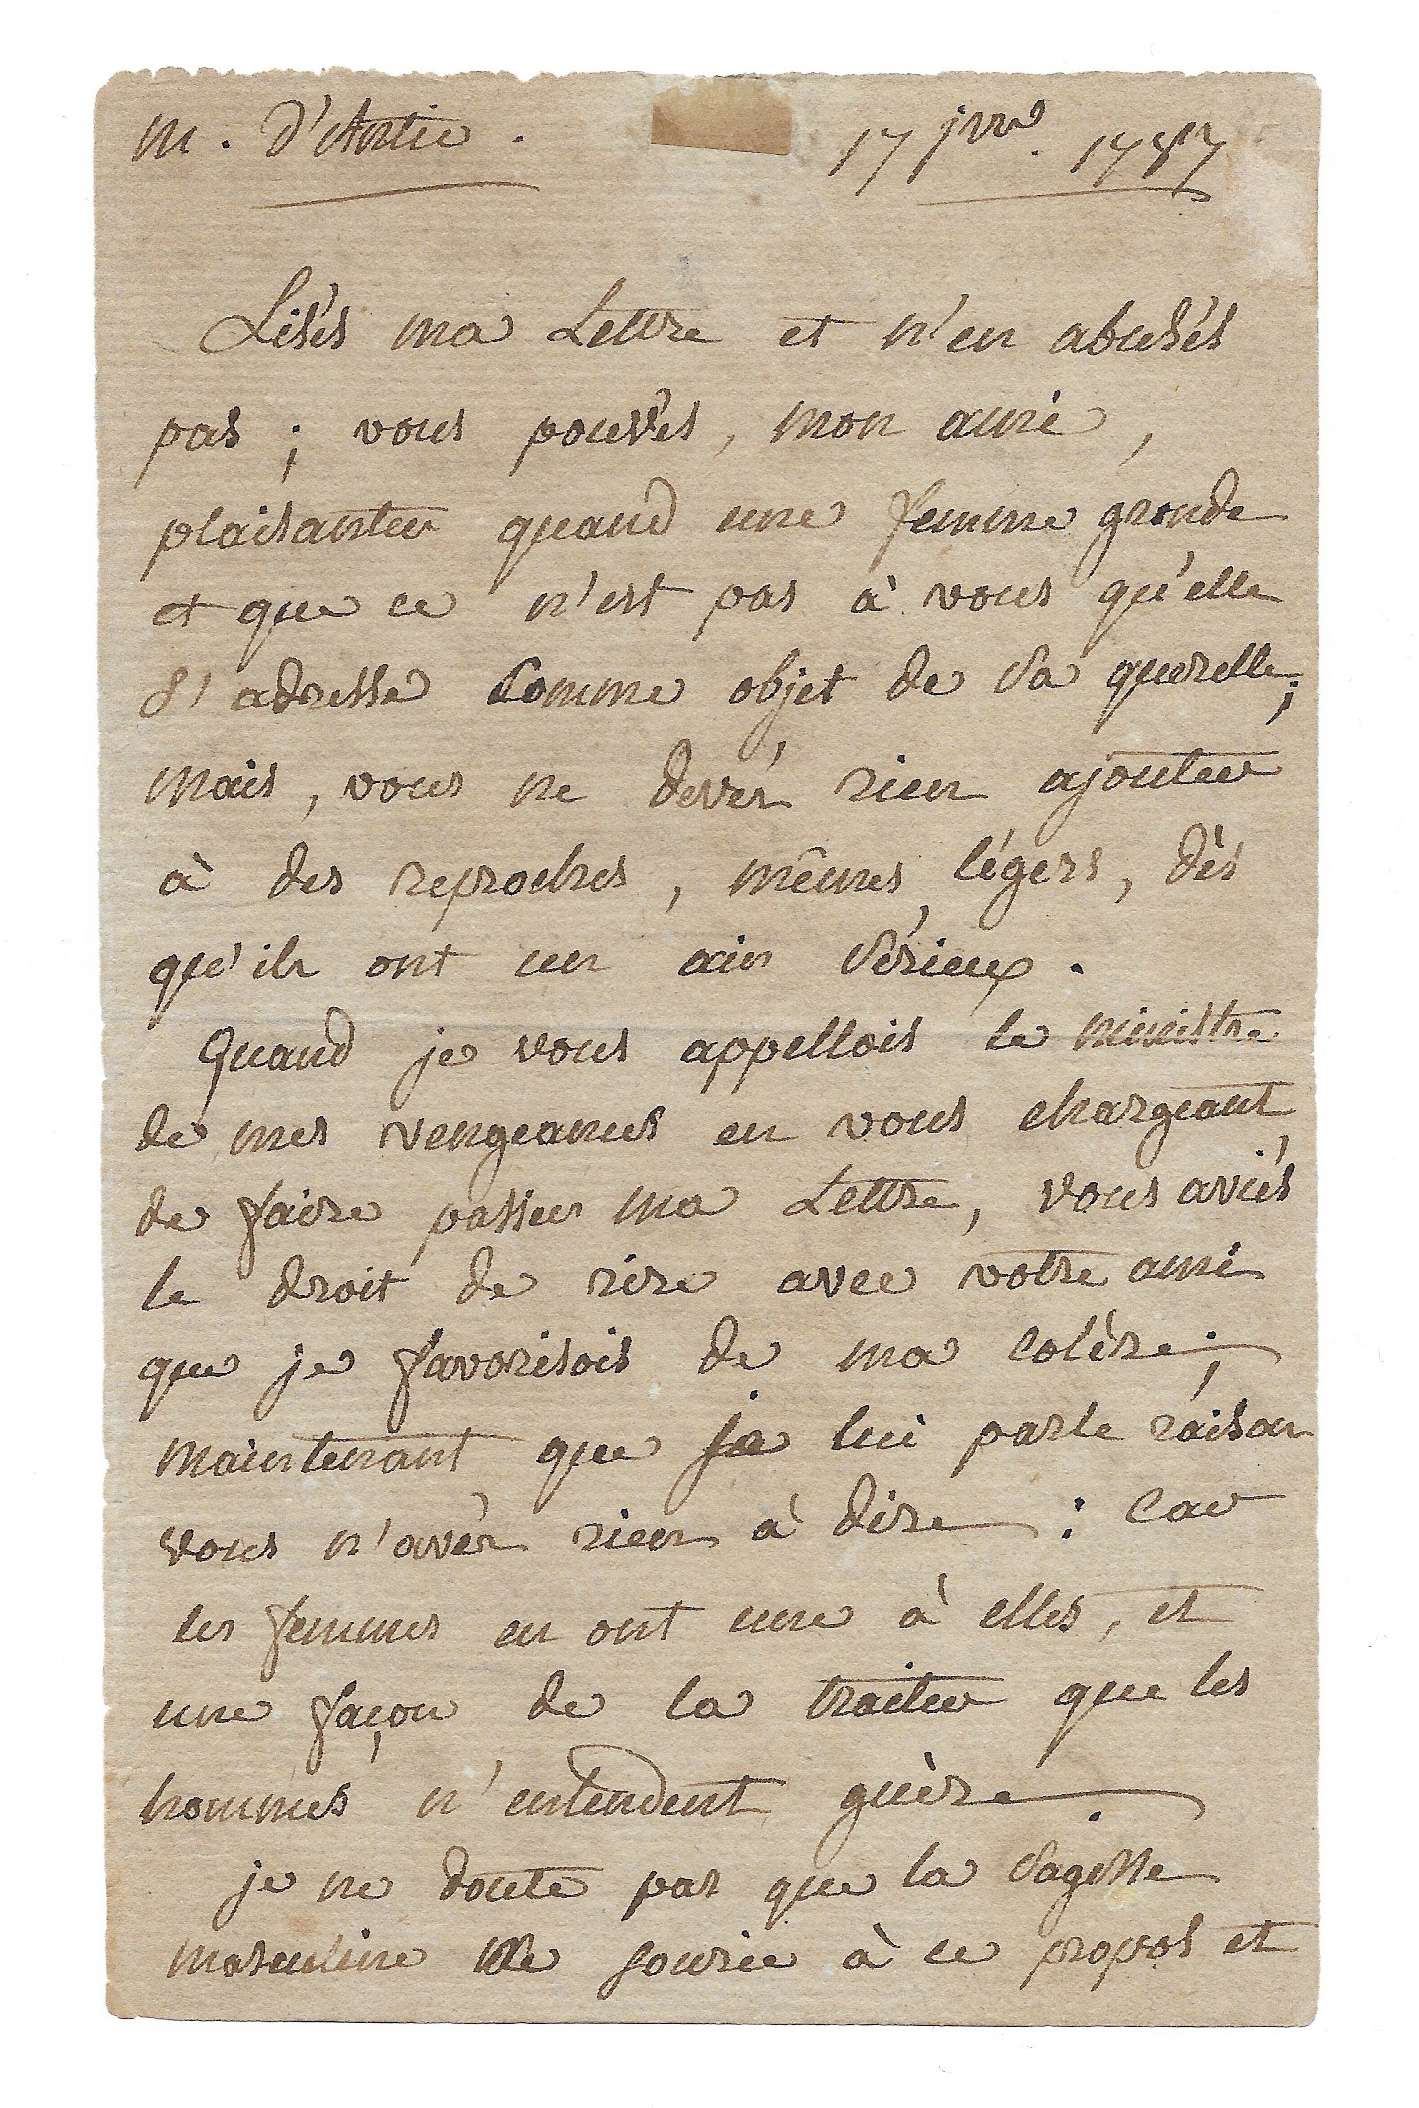 M. d'Antic.
17 jvre. 1787
Lisés ma Lettre et n'en abusés
pas; vous pouvés, mon ami,
plaisanter quand une femme gronde
et que ce n'est pas à vous qu'elle
s'adresse comme objet de sa querelle;
mais, vous ne devés rien ajouter
à des reproches, mêmes légers, dès
qu'ils ont un air sérieux.
Quand je vous appellois le ministre
de mes vengeances en vous chargeant
de faire passer ma Lettre, vous aviés
le droit de rire avec votre ami
que je favorisois de ma colère;
maintenant que je lui parle raison
vous n'avés rien à dire: car
les femmes en ont une à elles, et
une façon de la traiter que les
hommes n'entendent guère.
je ne doute pas que la sagesse
masculine ne sourie à ce propos et